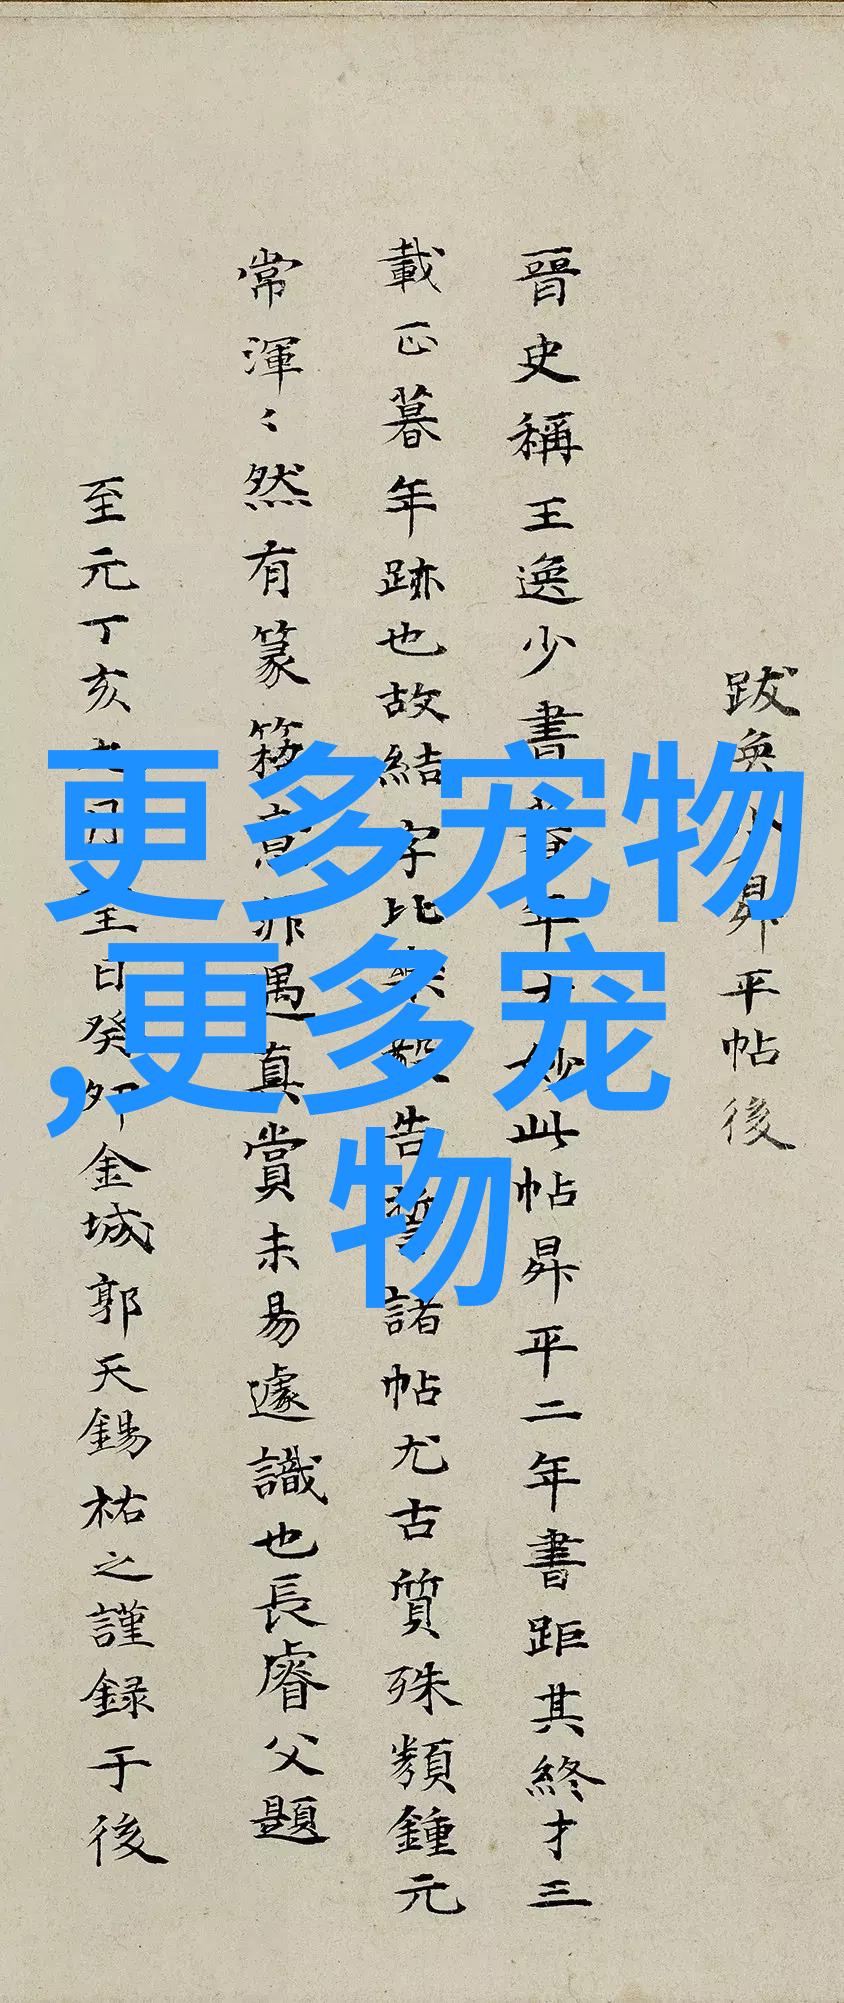 跋逸少昇平帖後
晉史稱王逸少書暮年方妙此帖昇平二年書距其終才三
載正暮年跡也故結字比樂毅告誓諸帖尤古質殊類鍾元
常渾〻然有篆籀意非遇真賞未易遽識也長睿父題
至元丁亥 月 日癸卯金城郭天錫祐之謹録于後
更多宠物
,更多宠
物